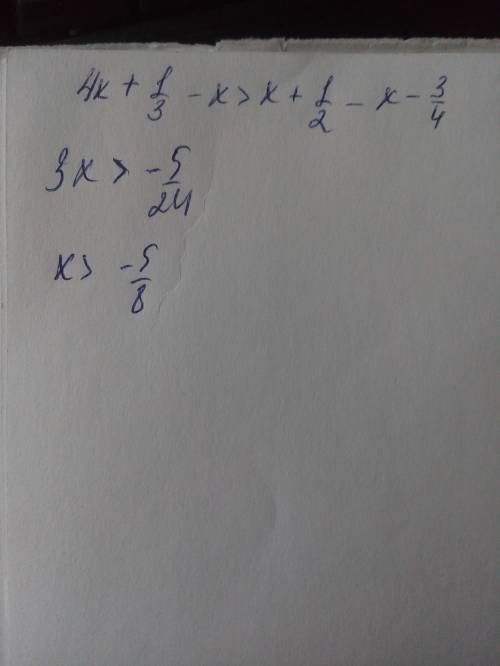 4x + 1/3 - x > x + 1/2 - x - 3/4
3x > -5/24
x > -5/8